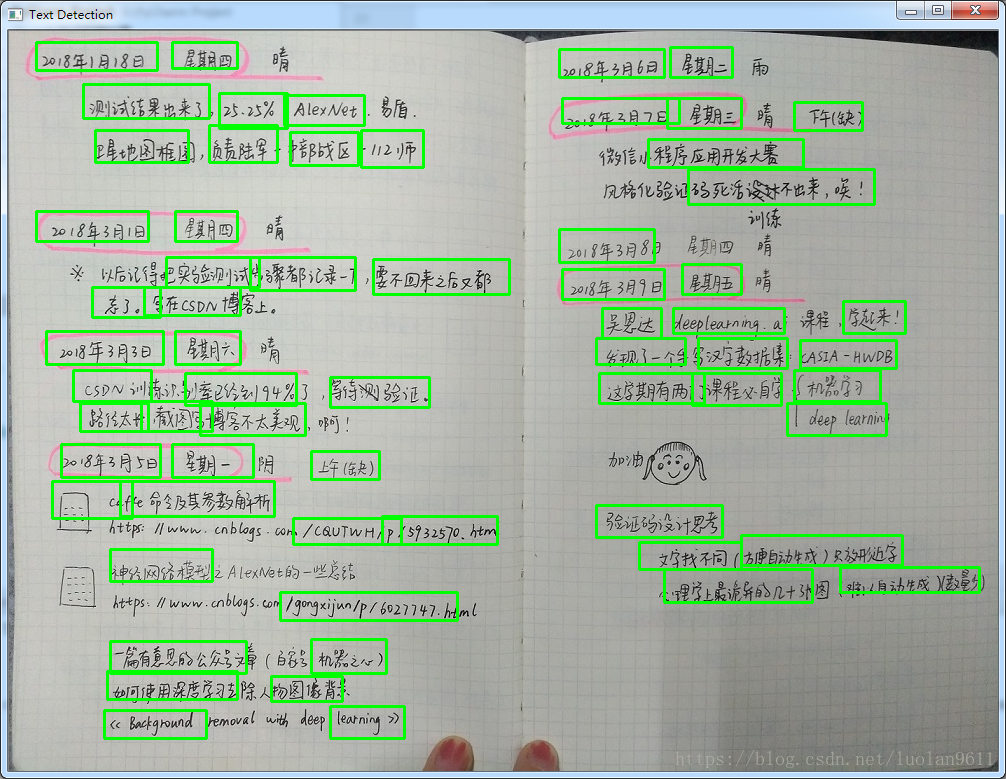 Text Detection
2018年1月18日 星期四 晴
测试结果出来了，25.25% AlexNet. 易盾.
卫星地图框图，负责陆军-中部战区-112师
2018年3月1日 星期四 晴
※ 以后记得把实验测试步骤都记录一下，要不回来之后又都
忘了。写在CSDN博客上。
2018年3月3日 星期六 晴
CSDN 训练识别率已经到94%了，等待测验证。
路径太长 截图写博客不太美观，啊！
2018年3月5日 星期一 阴 上午(缺)
caffe 命令及其参数解析
https://www.cnblogs.com/CQUTWH/p/5932570.html
神经网络模型之AlexNet的一些总结
https://www.cnblogs.com/gongxijun/p/6027747.html
一篇有意思的公众号文章（自家号 机器之心）
如何使用深度学习去除人物图像背景
<< Background removal with deep learning >>
2018年3月6日 星期二 雨
2018年3月7日 星期三 晴 下午(缺)
微信小程序应用开发大赛
风格化验证码死活 不出来，唉！
训练
2018年3月8日 星期四 晴
2018年3月9日 星期五 晴
吴恩达 deeplearning.ai 课程，学起来！
发现了一个手写汉字数据集 CASIA-HWDB
这学期有两门课程必自学 { 机器学习
deep learning
加油
验证码设计思考
文字找不同（方便自动生成）只放形近字
心理学上最诡异的几十张图（难以自动生成）(数量少)
https://blog.csdn.net/luolan9611